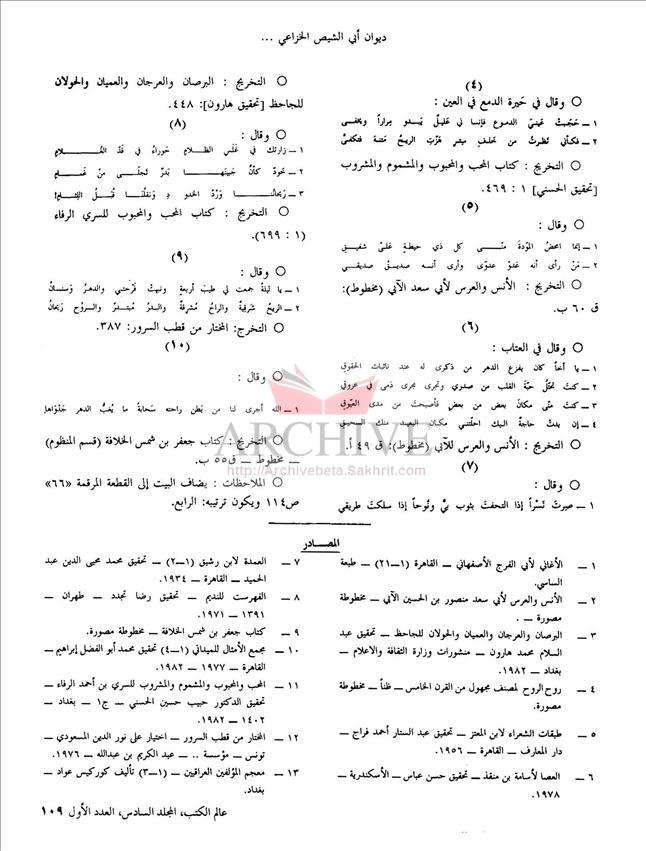 ديوان أبي الشيص الخزاعي ...
(٤)
○ وقال في حَيرة الدمع في العين :
١ ــ حَجَبتُ عَينيّ الدموع فإنسا ني غليلٌ يَبدو مِراراً ويخفى
٢ ــ فكأني نظرتُ من خلفِ سِترٍ هَزّت الريحُ مَتنهُ فتكفّى
○ التخريج : كتاب المحب والمحبوب والمشموم والمشروب
[تحقيق الحسني] ١ : ٤٦٩.
(٥)
○ وقال :
١ ــ إنما امحضُ المَوّدةَ منّي كل ذي حيطةٍ عَليّ شفيقِ
٢ ــ مَنْ رأى أنه عَدو عدوّي وأرى أنه صديق صديقي
○ التخريج : الأنس والعرس لأبي سعد الآبي (مخطوط):
ق ٦٠ ب.
(٦)
○ وقال في العتاب :
١ ــ يا أخاً كان يفزع الدهر من ذكرى له عند نائبات الحقوقِ
٢ ــ كنتَ تحتَلّ حَبّة القلب من صدري وتجرى مجرى دمي في عروقي
٣ ــ كنتَ منّي مكانَ بعضيَ من بعضٍ فأصبحتَ من مدى العيّوق
٤ ــ إن بدتْ حاجةٌ اليك احلّتني مكان البعيد منك السحيق
○ التخريج : الأنس والعرس للآبي (مخطوط): ق ٤٩ أ.
(٧)
○ وقال :
١ ــ صيرتَ نَسْراً إذا التحفتَ بثوب بيْ ونُوحاً إذا سلكتَ طريقي
○ التخريج : البرصان والعرجان والعميان والحولان
للجاحظ [تحقيق هارون]: ٤٤٨.
(٨)
○ وقال :
١ ــ زارتك في غَلَس الظلامِ حَوراءُ في قَدّ الغُلامِ
٢ ــ خودٌ كأنّ جبينَها بَدْرٌ تجلّى مِنْ غَمامِ
٣ ــ رَيحانُنا وَرْدُ الخدو دِ ونَقلُنا قُبَلُ اللِثامِ!
○ التخريج : كتاب المحب والمحبوب للسري الرفاء
(١ : ٦٩٩).
(٩)
○ وقال :
١ ــ يا ليلةً جمعت لي طيبَ أربعةٍ ونبهتْ فَرْحتي والدهرُ وَسنانُ
٢ ــ الريحُ شرقيةٌ والراحُ مُشرقةٌ والبدرُ مُبتدرٌ والروحُ رَيحانُ
○ التخرج: المختار من قطب السرور: ٣٨٧.
(١٠)
○ وقال :
١ ــ الله أجرى لنا من بَطن راحته سَحابةً ما يُغبُّ الدهر جَدْواها
○ التخريج : كتاب جعفر بن شمس الخلافة (قسم المنظوم)
ــ مخطوط ــ ق٥٥ ب.
○ الملاحظات : يضاف البيت إلى القطعة المرقمة «٦٦»
ص١١٤ ويكون ترتيبه: الرابع.
ARCHIVE
http://Archivebeta.Sakhrit.com
المصــادر
١ ــ الأغاني لأبي الفرج الأصفهاني ــ القاهرة (١ــ٢١) ــ طبعة
الساسي.
٢ ــ الأنس والعرس لأبي سعد منصور بن الحسين الآبي ــ مخطوطة
مصورة ــ .
٣ ــ البرصان والعرجان والعميان والحولان للجاحظ ــ تحقيق عبد
السلام محمد هارون ــ منشورات وزارة الثقافة والاعلام ــ
بغداد ــ ١٩٨٢.
٤ ــ روح الروح لمصنف مجهول من القرن الخامس ــ ظناً ــ مخطوطة
مصورة.
٥ ــ طبقات الشعراء لابن المعتز ــ تحقيق عبد الستار أحمد فراج ــ
دار المعارف ــ القاهرة ــ ١٩٥٦.
٦ ــ العصا لأسامة بن منقذ ــ تحقيق حسن عباس ــ الأسكندرية ــ
١٩٧٨.
٧ ــ العمدة لابن رشيق (١ــ٢) ــ تحقيق محمد محيى الدين عبد
الحميد ــ القاهرة ــ ١٩٣٤.
٨ ــ الفهرست للنديم ــ تحقيق رضا تجدد ــ طهران ــ
١٣٩١ ــ ١٩٧١.
٩ ــ كتاب جعفر بن شمس الخلافة ــ مخطوطة مصورة.
١٠ ــ مجمع الأمثال للميداني (١ــ٤) تحقيق محمد أبو الفضل إبراهيم ــ
القاهرة ــ ١٩٧٧ ــ ١٩٨٢.
١١ ــ المحب والمحبوب والمشموم والمشروب للسري بن أحمد الرفاء ــ
تحقيق الدكتور حبيب حسين الحسني ــ ج١ ــ بغداد ــ
١٤٠٢ ــ ١٩٨٢.
١٢ ــ المختار من قطب السرور ــ اختيار على نور الدين المسعودي ــ
تونس ــ مؤسسة .. ــ عبد الكريم بن عبدالله ــ ١٩٧٦.
١٣ ــ معجم المؤلفين العراقيين ــ (١ــ٣) تأليف كوركيس عواد ــ
بغداد.
عالم الكتب، المجلد السادس، العدد الأول ١٠٩